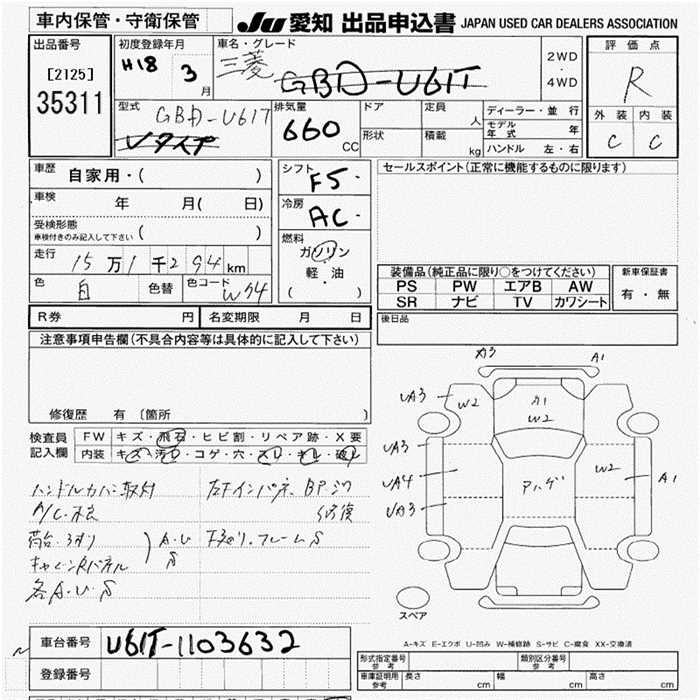 車内保管・守衛保管
JU 愛知 出品申込書 JAPAN USED CAR DEALERS ASSOCIATION
出品番号
[2125]
35311
初度登録年月
H18 3月
車名・グレード
三菱
GBD-U61T
2WD
・
4WD
評価点
R
外装 内装
C C
型式
GBD-U61T
Vタイプ
排気量
660 CC
ドア
形状
定員 人
積載 kg
ディーラー・並行
モデル年式 年
ハンドル 左・右
車歴
自家用・( )
車検
年 月( 日)
受検形態
車検付きのみ記入して下さい ( )
走行
15万1千294km
色
白
色替
色コード
W94
シフト
F5・
冷房
AC・
燃料
ガソリン
・
軽油
・
( )
セールスポイント(正常に機能するものに限ります)
装備品(純正品に限り○をつけてください)
PS PW エアB AW
SR ナビ TV カワシート
新車保証書
有・無
後日品
R券 円 名変期限 月 日
注意事項申告欄(不具合内容等は具体的に記入して下さい)
修復歴 有 〔箇所 〕
検査員
記入欄
FW キズ・飛石・ヒビ割・リペア跡・X要
内装 キズ・汚レ・コゲ・穴・スレ・キレ・破レ
ハンドルカバー取付
荷台・3方リ
A・U
S
各A・U・S
左Fインパネ、BPシワ
修復
下廻り、フレームS
A3
A1
UA3
W2
A1
W2
UA3
UA4
UA3
W2
A1
アハゲ
スペア
A-キズ E-エクボ U-凹み W-補修跡 S-サビ C-腐食 XX-交換済
車台番号
U61T-1103632
登録番号
型式指定番号
参考
類別区分番号
参考
車庫証明用
参考
長さ cm 幅 cm 高さ cm